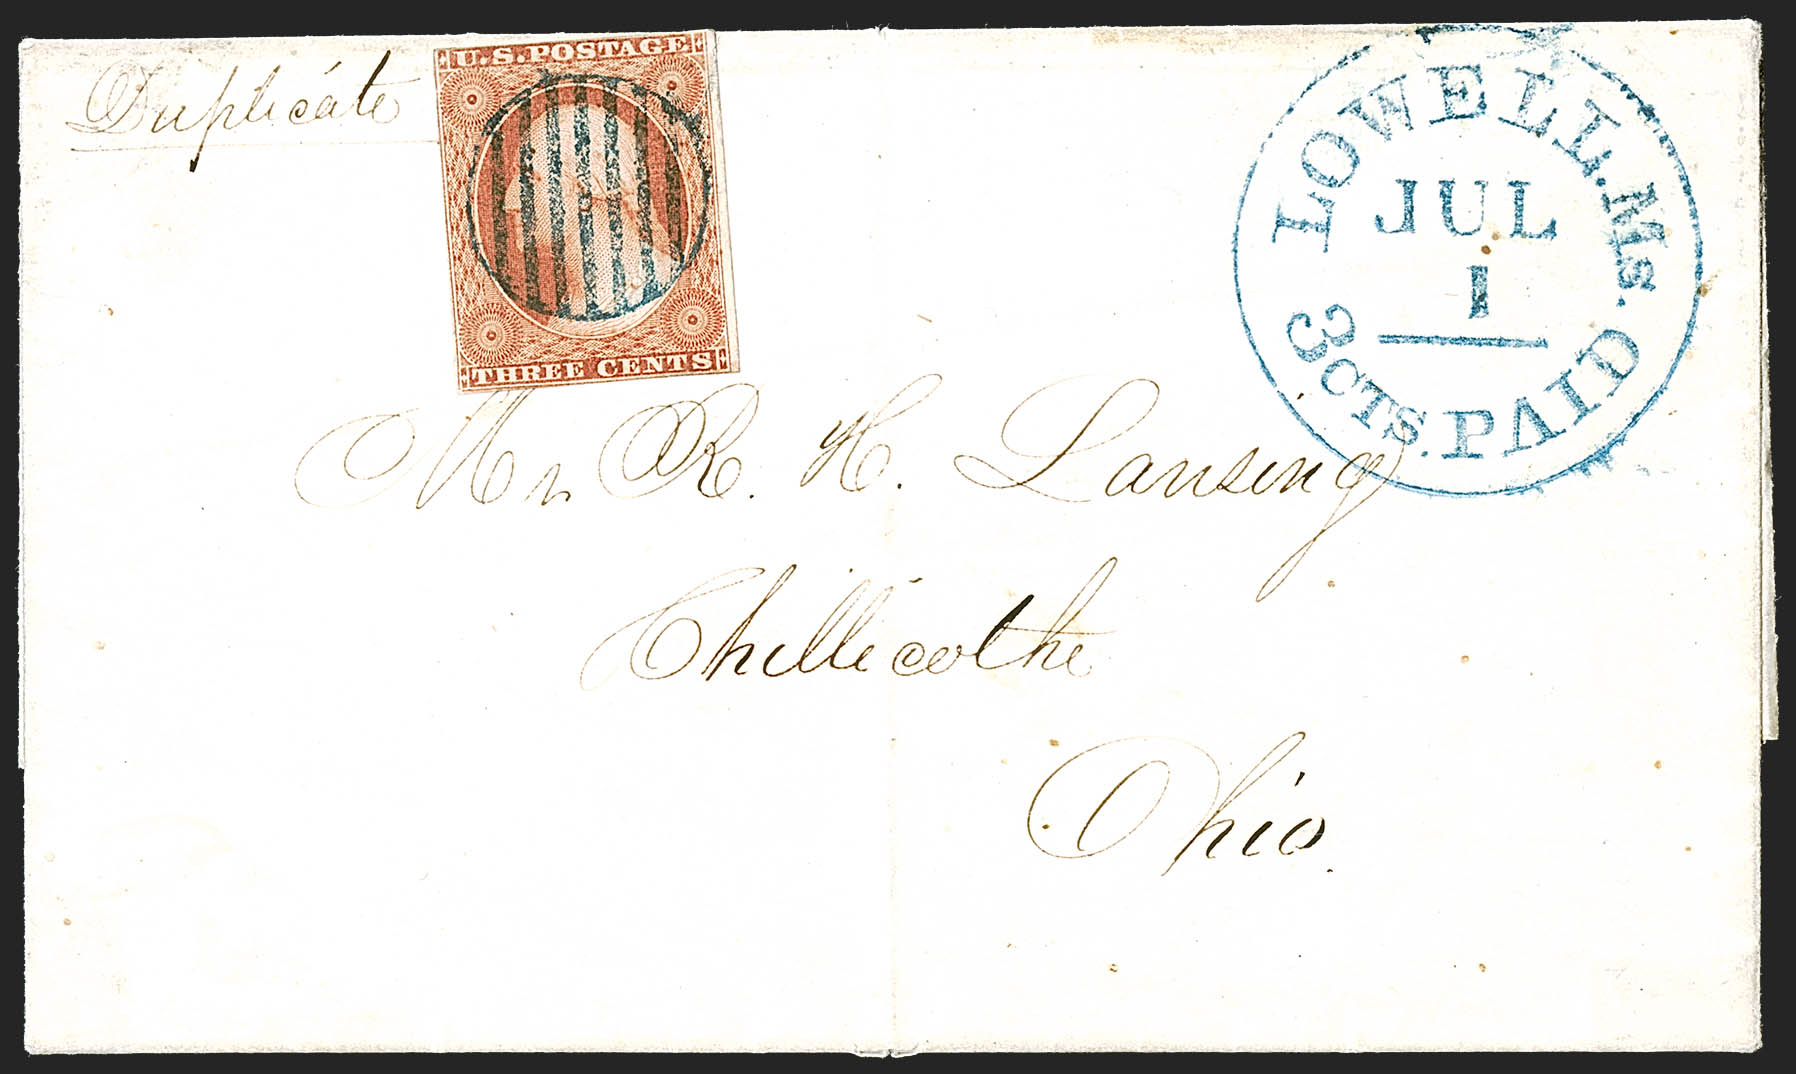 Duplicate
U.S. POSTAGE
THREE CENTS
LOWELL. Ms.
JUL
1
3 CTS. PAID
Mr R. H. Lansing
Chillicothe
Ohio.